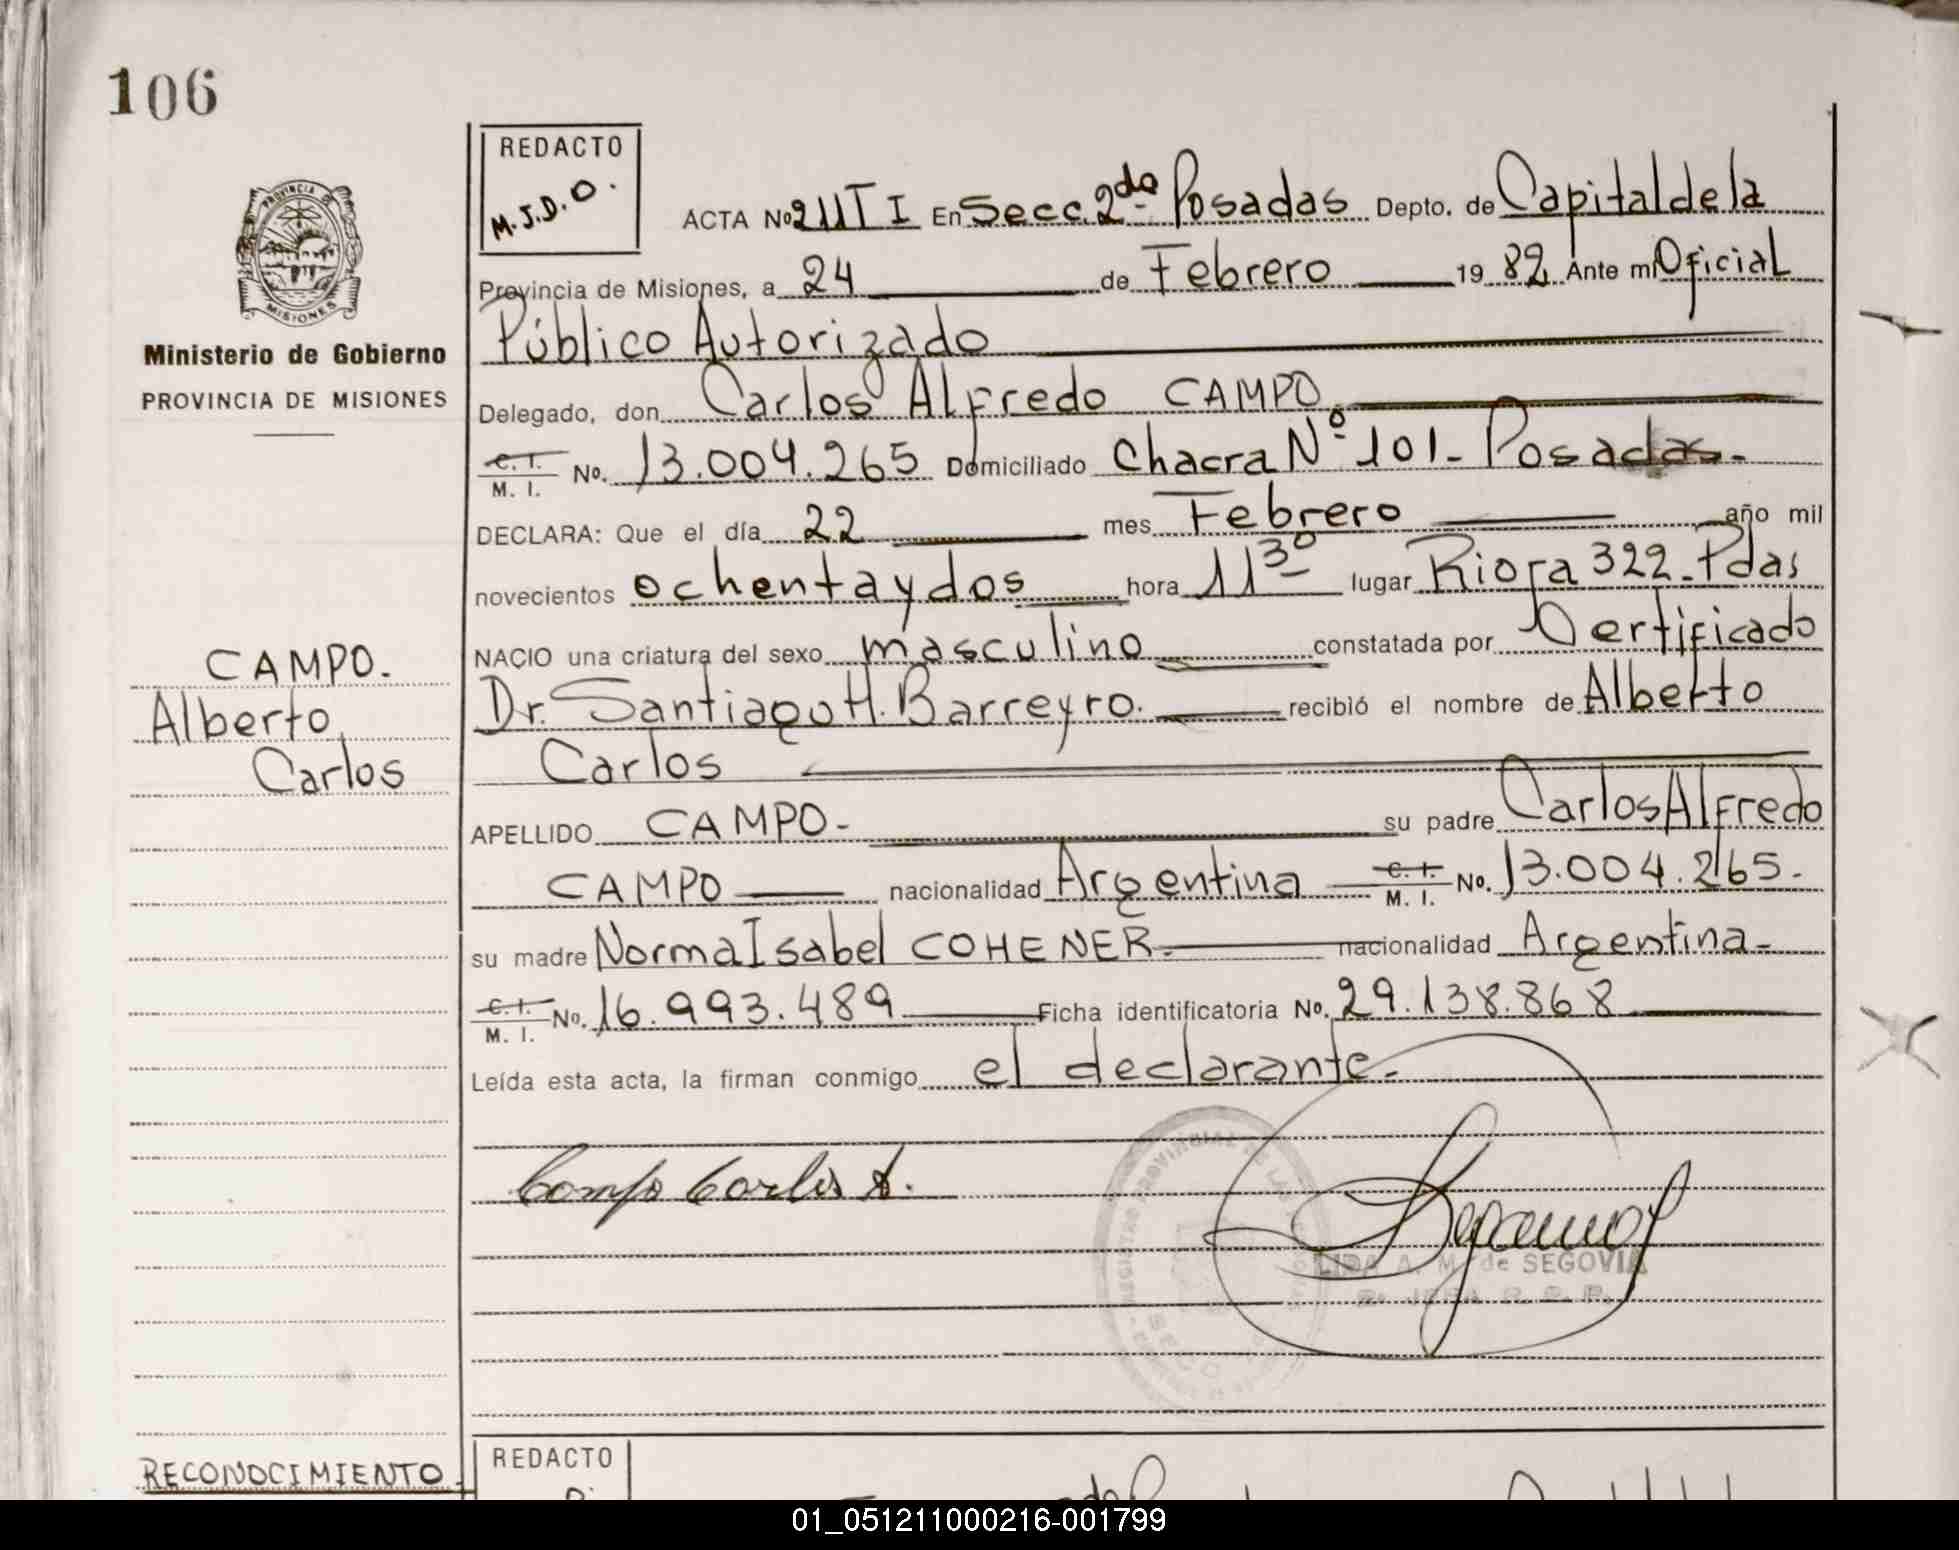 106
REDACTO
M.J.D.O.
ACTA Nº 211 T I En Secc. 2da Posadas Depto. de Capital de la
Provincia de Misiones, a 24 de Febrero 1982 Ante mi Oficial
Público Autorizado
Delegado, don Carlos Alfredo CAMPO
C. I.
M. I. No. 13.004.265 Domiciliado Chacra Nº 101- Posadas-
DECLARA: Que el día 22 mes Febrero año mil
novecientos ochenta y dos hora 11 30 lugar Rioja 322-Pdas
NACIO una criatura del sexo masculino constatada por Certificado
Dr. Santiago H. Barreyro. recibió el nombre de Alberto
Carlos
APELLIDO CAMPO- su padre Carlos Alfredo
CAMPO nacionalidad Argentina C. I. M. I. No. 13.004.265.
su madre Norma Isabel COHENER- nacionalidad Argentina-
C. I.
M. I. No. 16.993.489 Ficha identificatoria No. 29.138.868
Leída esta acta, la firman conmigo el declarante-
Campo Carlos A.
LIDA A. M. de SEGOVIA
PROVINCIA DE
MISIONES
Ministerio de Gobierno
PROVINCIA DE MISIONES
CAMPO.
Alberto
Carlos
RECONOCIMIENTO
REDACTO
01_051211000216-001799